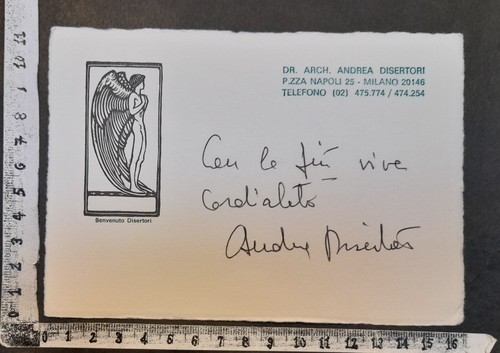 DR. ARCH. ANDREA DISERTORI
P.ZZA NAPOLI 25 - MILANO 20146
TELEFONO (02) 475.774 / 474.254
Con le più vive
cordialità
Andrea Disertori
Benvenuto Disertori
0 1 2 3 4 5 6 7 8 9 10 11
0 1 2 3 4 5 6 7 8 9 10 11 12 13 14 15 16